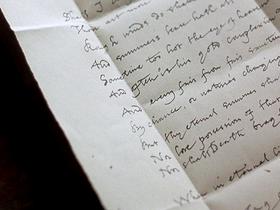 Shall I
Thou art more
Rough winds do shake
And summers lease hath all
Sometime too hot the eye of heaven
And often is his gold complexion
And every fair from fair sometime
By chance, or natures changing
But thy eternal summer shall
Nor lose possession of that
Nor shall Death brag
When in eternal